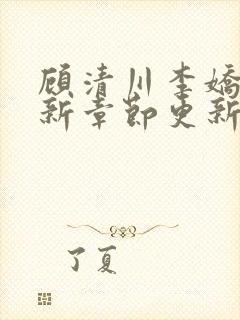 顾清川李娇
新章节更新
了夏